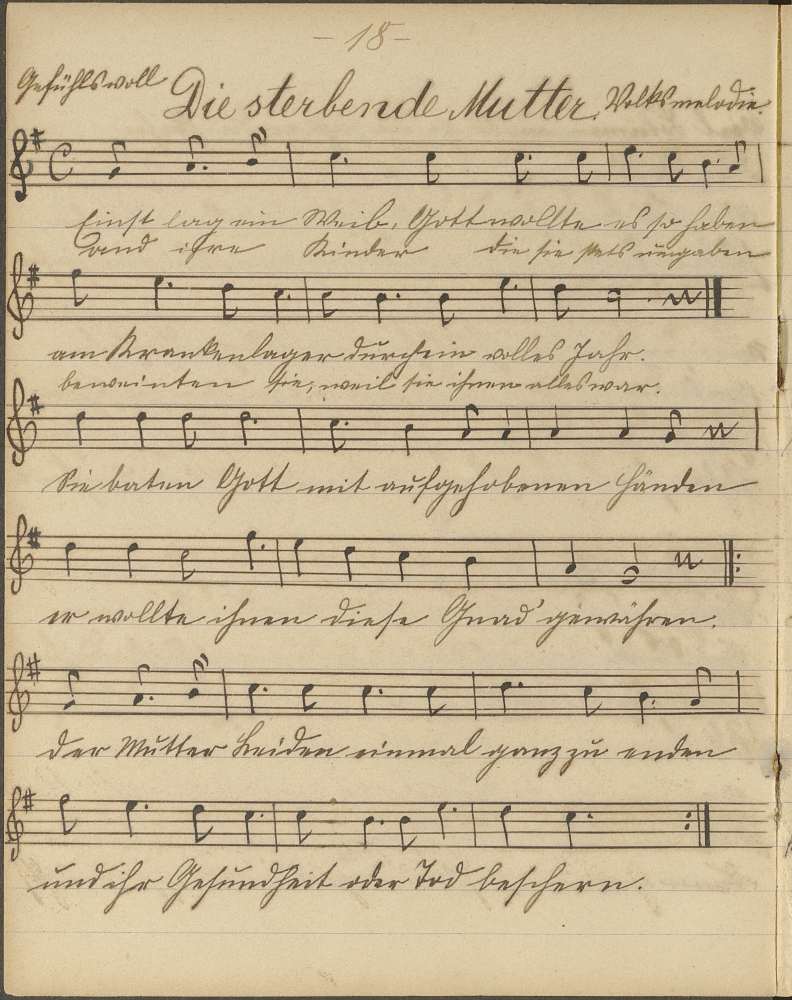 – 18 –
Gefühlsvoll Die sterbende Mutter. Volksmelodie.
Einst lag ein Weib, Gott wollte es so haben
und ihre Kinder die sie stets umgaben
am Krankenlager durch ein volles Jahr.
beweinten sie, weil sie ihnen alles war.
Sie baten Gott mit aufgehobenen Händen
er wollte ihnen diese Gnad' gewähren.
der Mutter Leiden einmal ganz zu enden
und ihr Gesundheit oder Tod beschern.